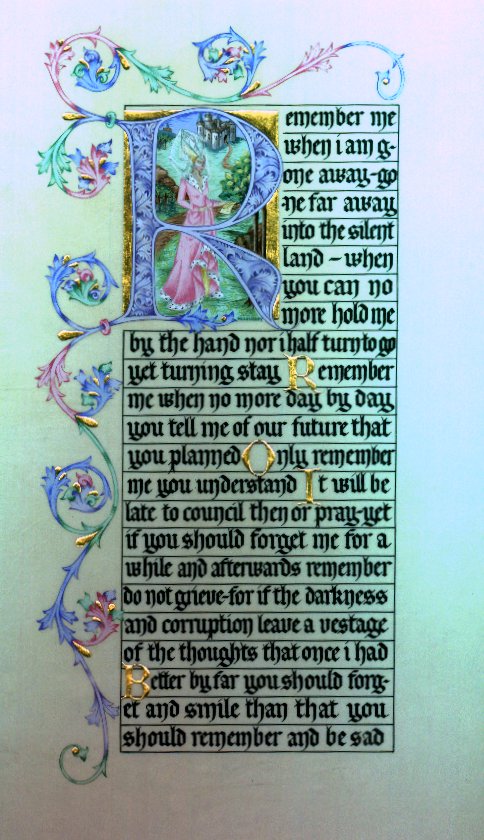 Remember me
when i am g-
one away-go
ne far away
into the silent
land - when
you can no
more hold me
by the hand nor i half turn to go
yet turning stay Remember
me when no more day by day
you tell me of our future that
you planned Only remember
me you understand It will be
late to council then or pray-yet
if you should forget me for a
while and afterwards remember
do not grieve-for if the darkness
and corruption leave a vestage
of the thoughts that once i had
Better by far you should forg-
et and smile than that you
should remember and be sad